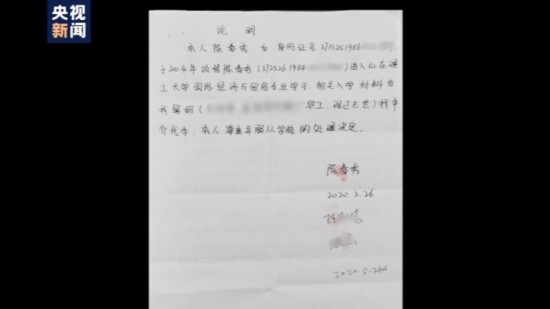 央视
新闻
说 明
本人陈春秀,女 身份证号 3715251986
于2004年顶替陈春秀(3725261984 )进入山东理
工大学国际经济与贸易专业学习,相关入学材料为
(职工,现已去世)找中
介代办,本人尊重并服从学校的处理决定。
陈春秀
2020.5.26